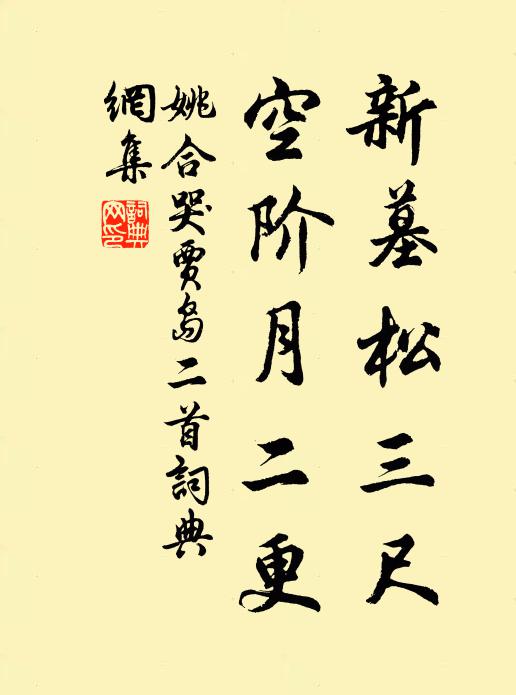 新墓松三尺
空阶月二更
姚合哭賈島二首詞典
網集
詞典網印